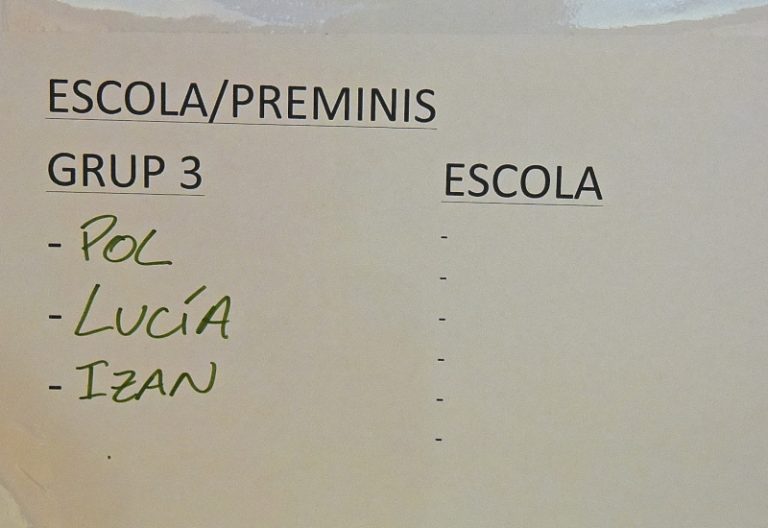 ESCOLA/PREMINIS
GRUP 3
- POL
- LUCÍA
- IZAN
ESCOLA
-
-
-
-
-
-